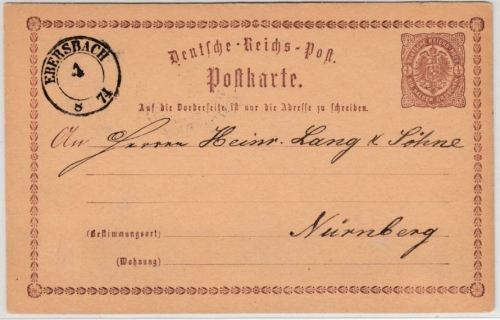 EBERSBACH
4
8 74
Deutsche Reichs-Post.
Postkarte.
Auf die Vorderseite ist nur die Adresse zu schreiben.
An Herren Heinr. Lang & Söhne
Nürnberg
(Bestimmungsort)
(Wohnung)